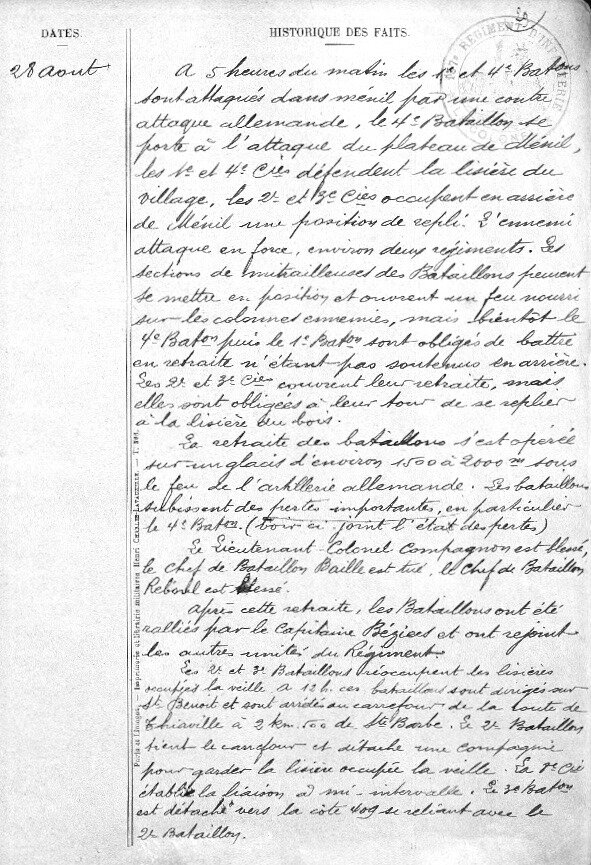 DATES.
HISTORIQUE DES FAITS.
28 août
A 5 heures du matin les 1e et 4e Batons
sont attaqués dans ménil par une contre
attaque allemande, le 4e Bataillon se
porte à l'attaque du plateau de Ménil,
les 1e et 4e Cies défendent la lisière du
village, les 2e et 3e Cies occupent en arrière
de Ménil une position de repli. L'ennemi
attaque en force, environ deux régiments. Les
sections de mitrailleuses des Bataillons peuvent
se mettre en position et ouvrent un feu nourri
sur les colonnes ennemies, mais bientôt le
4e Baton puis le 1e Baton sont obligés de battre
en retraite n'étant pas soutenus en arrière.
Les 2e et 3e Cies couvrent leur retraite, mais
elles sont obligées à leur tour de se replier
à la lisière du bois.
La retraite des bataillons s'est opérée
sur un glacis d'environ 1500 à 2000 m sous
le feu de l'artillerie allemande. Les bataillons
subissent des pertes importantes, en particulier
le 4e Baton. (Voir ci joint l'état des pertes)
Le Lieutenant-Colonel Compagnon est blessé,
le Chef de Bataillon Baille est tué, le Chef de Bataillon
est blessé.
Après cette retraite, les Bataillons ont été
ralliés par le Capitaine Béziers et ont rejoint
les autres unités du Régiment
Les 2e et 3e Bataillons réoccupent les lisières
occupées la veille. A 12h. ces bataillons sont dirigés sur
St Benoit et sont arrêtés au carrefour de la route de
Thiaville à 2 km. 500 de Ste Barbe. Le 2e Bataillon
tient le carrefour et détache une compagnie
pour garder la lisière occupée la veille. La 7e Cie
établit la liaison à mi-intervalle. Le 3e Baton
est détaché vers la côte 409 se reliant avec le
2e Bataillon.
Paris et Limoges. — Imprimerie et librairie militaires Henri CHARLES-LAVAUZELLE.
REGIMENT D'INFANTERIE